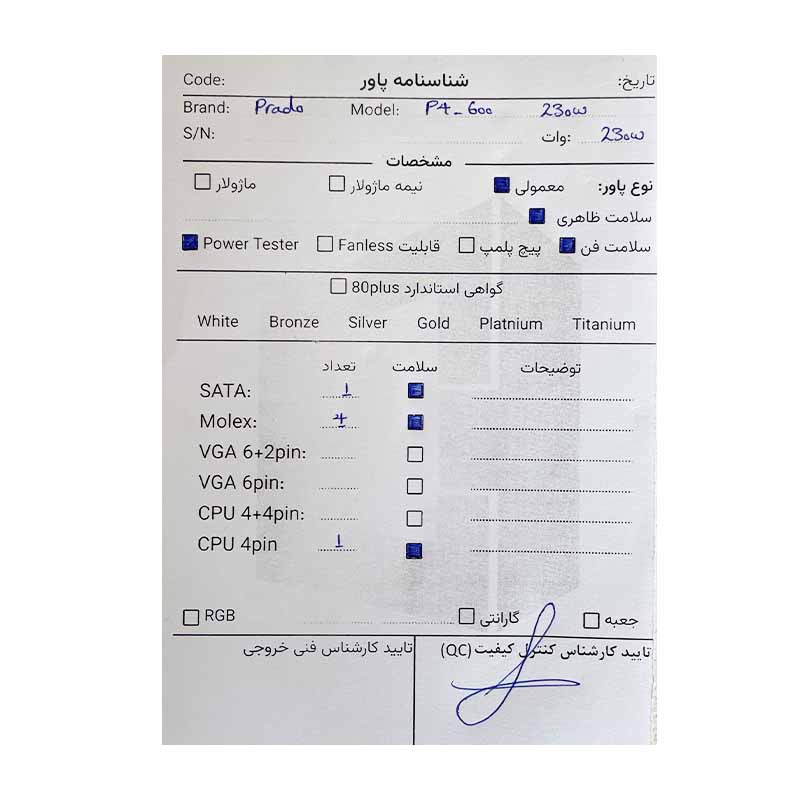 Code: شناسنامه پاور تاریخ:
Brand: Prado Model: P4-600 230W
S/N: وات: 230W
مشخصات
نوع پاور: معمولی نیمه ماژولار ماژولار
سلامت ظاهری
سلامت فن پیچ پلمپ قابلیت Fanless Power Tester
گواهی استاندارد 80plus
White Bronze Silver Gold Platnium Titanium
تعداد سلامت توضیحات
SATA: 1
Molex: 4
VGA 6+2pin:
VGA 6pin:
CPU 4+4pin:
CPU 4pin 1
RGB گارانتی جعبه
تایید کارشناس کنترل کیفیت (QC) تایید کارشناس فنی خروجی